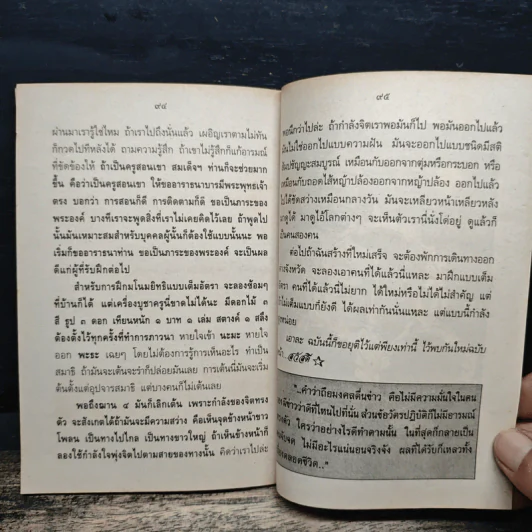 ๙๔
ผ่านมาเรารู้ใช่ไหม ถ้าเราไปถึงนั่นแล้ว เผอิญเราตามไม่ทัน
ก็กวดไปทีหลังได้ ถามความรู้สึก ถ้าเขาไม่รู้สึกก็แก้อารมณ์
ที่ขัดข้องให้ ถ้าเป็นครูสอนเขา สมเด็จฯ ท่านก็จะช่วยมาก
ขึ้น คือว่าเป็นครูสอนเขา ให้ขออาราธนาบารมีพระพุทธเจ้า
ตรง บอกว่า การสอนก็ดี การติดตามก็ดี ขอเป็นภาระของ
พระองค์ บางทีเราจะพูดสิ่งที่เราไม่เคยคิดไว้เลย ถ้าพูดไป
นั้นมันเหมาะสมสำหรับบุคคลผู้นั้นก็ต้องใช้แบบนั้นนะ พอ
เริ่มก็ขออาราธนาท่าน ขอเป็นภาระของพระองค์ จะเป็นผล
ดีแก่ผู้ที่รับฝึกต่อไป
สำหรับการฝึกมโนมยิทธิแบบเต็มอัตรา จะลองซ้อมๆ
ที่บ้านก็ได้ แต่เครื่องบูชาครูนี่ขาดไม่ได้นะ มีดอกไม้ ๓
สี ธูป ๓ ดอก เทียนหนัก ๑ บาท ๑ เล่ม สตางค์ ๑ สลึง
ต้องตั้งไว้ทุกครั้งที่ทำการภาวนา หายใจเข้า นะมะ หายใจ
ออก พะธะ เฉยๆ โดยไม่ต้องการรู้การเห็นอะไร ทำเป็น
สมาธิ ถ้ามันจะเต้นจะรำก็ปล่อยมันเลย การเต้นนี่มันจะเริ่ม
ต้นตั้งแต่อุปจารสมาธิ แต่บางคนก็ไม่เต้นเลย
พอถึงฌาน ๔ มันก็เลิกเต้น เพราะกำลังของจิตทรง
ตัว จะสังเกตได้ถ้ามันจะมีความสว่าง คือเห็นจุดข้างหน้าขาว
โพลน เป็นทางไปไกล เป็นทางขาวใหญ่ ถ้าเห็นข้างหน้าก็
ลองใช้กำลังใจพุ่งจิตไปตามสายของทางนั้น คิดว่าเราไปล่ะ
๙๕
พอนึกว่าไปล่ะ ถ้ากำลังจิตเราพอมันก็ไป พอมันออกไปแล้ว
มันไม่ใช่ออกไปแบบความฝัน มันจะออกไปแบบชนิดมีสติ
สัมปชัญญะสมบูรณ์ เหมือนกับออกจากตุ่มหรือกระบอก หรือ
เหมือนกับถอดไส้หญ้าปล้องออกจากหญ้าปล้อง ออกไปแล้ว
ไปได้ชัดสว่างเหมือนกลางวัน มันจะเหลียวหน้าเหลียวหลัง
มาดูได้ มาดูไอ้โลกต่างๆ จะเห็นตัวเรานี่นั่งโด่อยู่ ดูแล้วก็
เป็นคนสองคน
ต่อไปถ้าฉันสร้างที่ใหม่เสร็จ จะต้องพักการเดินทางออก
ต่างจังหวัด จะลองเอาคนที่ได้แล้วนี่แหละ มาฝึกแบบเต็ม
คนที่ได้แล้วนี่ไม่ยาก ได้ใหม่หรือไม่ได้ไม่สำคัญ แต่
ไม่เต็มแบบก็ยังดี ได้ผลเท่ากันนั่นแหละ แต่แบบนี้กำลัง
หน่อย
เอาละ ฉบับนี้ก็ขอยุติไว้แต่เพียงเท่านี้ ไว้พบกันใหม่ฉบับ
สวัสดี
"..คำว่าถือมงคลตื่นข่าว คือไม่มีความมั่นใจในตน
ข่าวว่าดีที่ไหนไปที่นั่น ส่วนข้อวัตรปฏิบัติก็ไม่มีอารมณ์
ใครว่าอย่างไรดีทำตามนั้น ในที่สุดก็กลายเป็น
ไม่มีอะไรแน่นอนจริงจัง ผลที่ได้รับก็เหลวทั้ง
ตลอดชีวิต.."